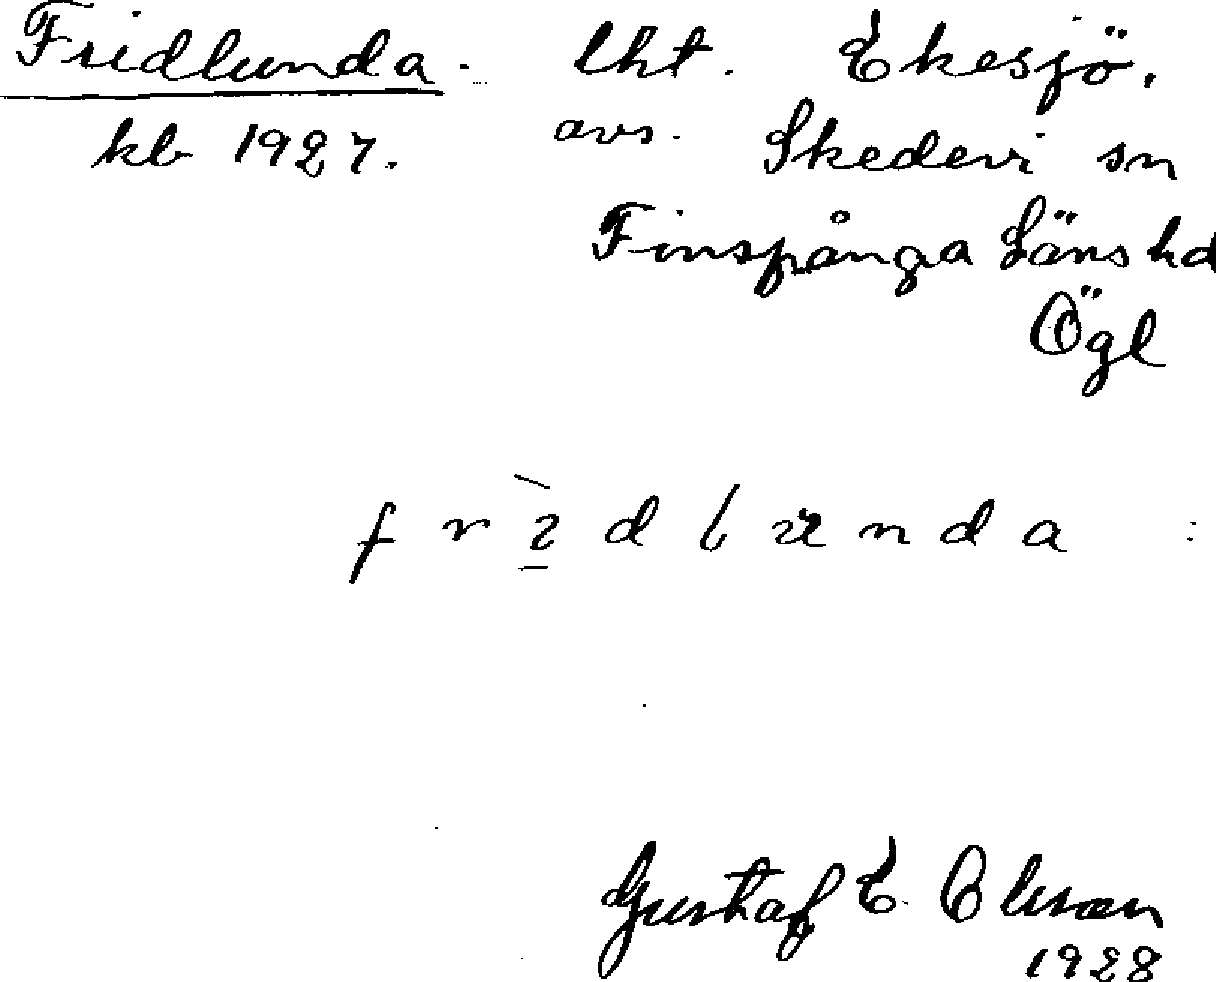 Fridlunda. lht. Ekesjö.
kb 1927. avs. Skedevi sn
Finspånga Läns hd
Ögl
f r i d l u n d a :
Gustaf E. Olsson
1928